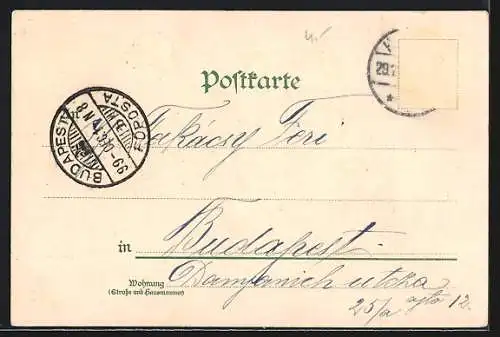 Postkarte
29.
BUDAPEST
FŐPOSTA
Takácsy Feri
in Budapest
Wohnung
(Straße und Hausnummer)
Damjanich utcka
25/a ajtó 12.